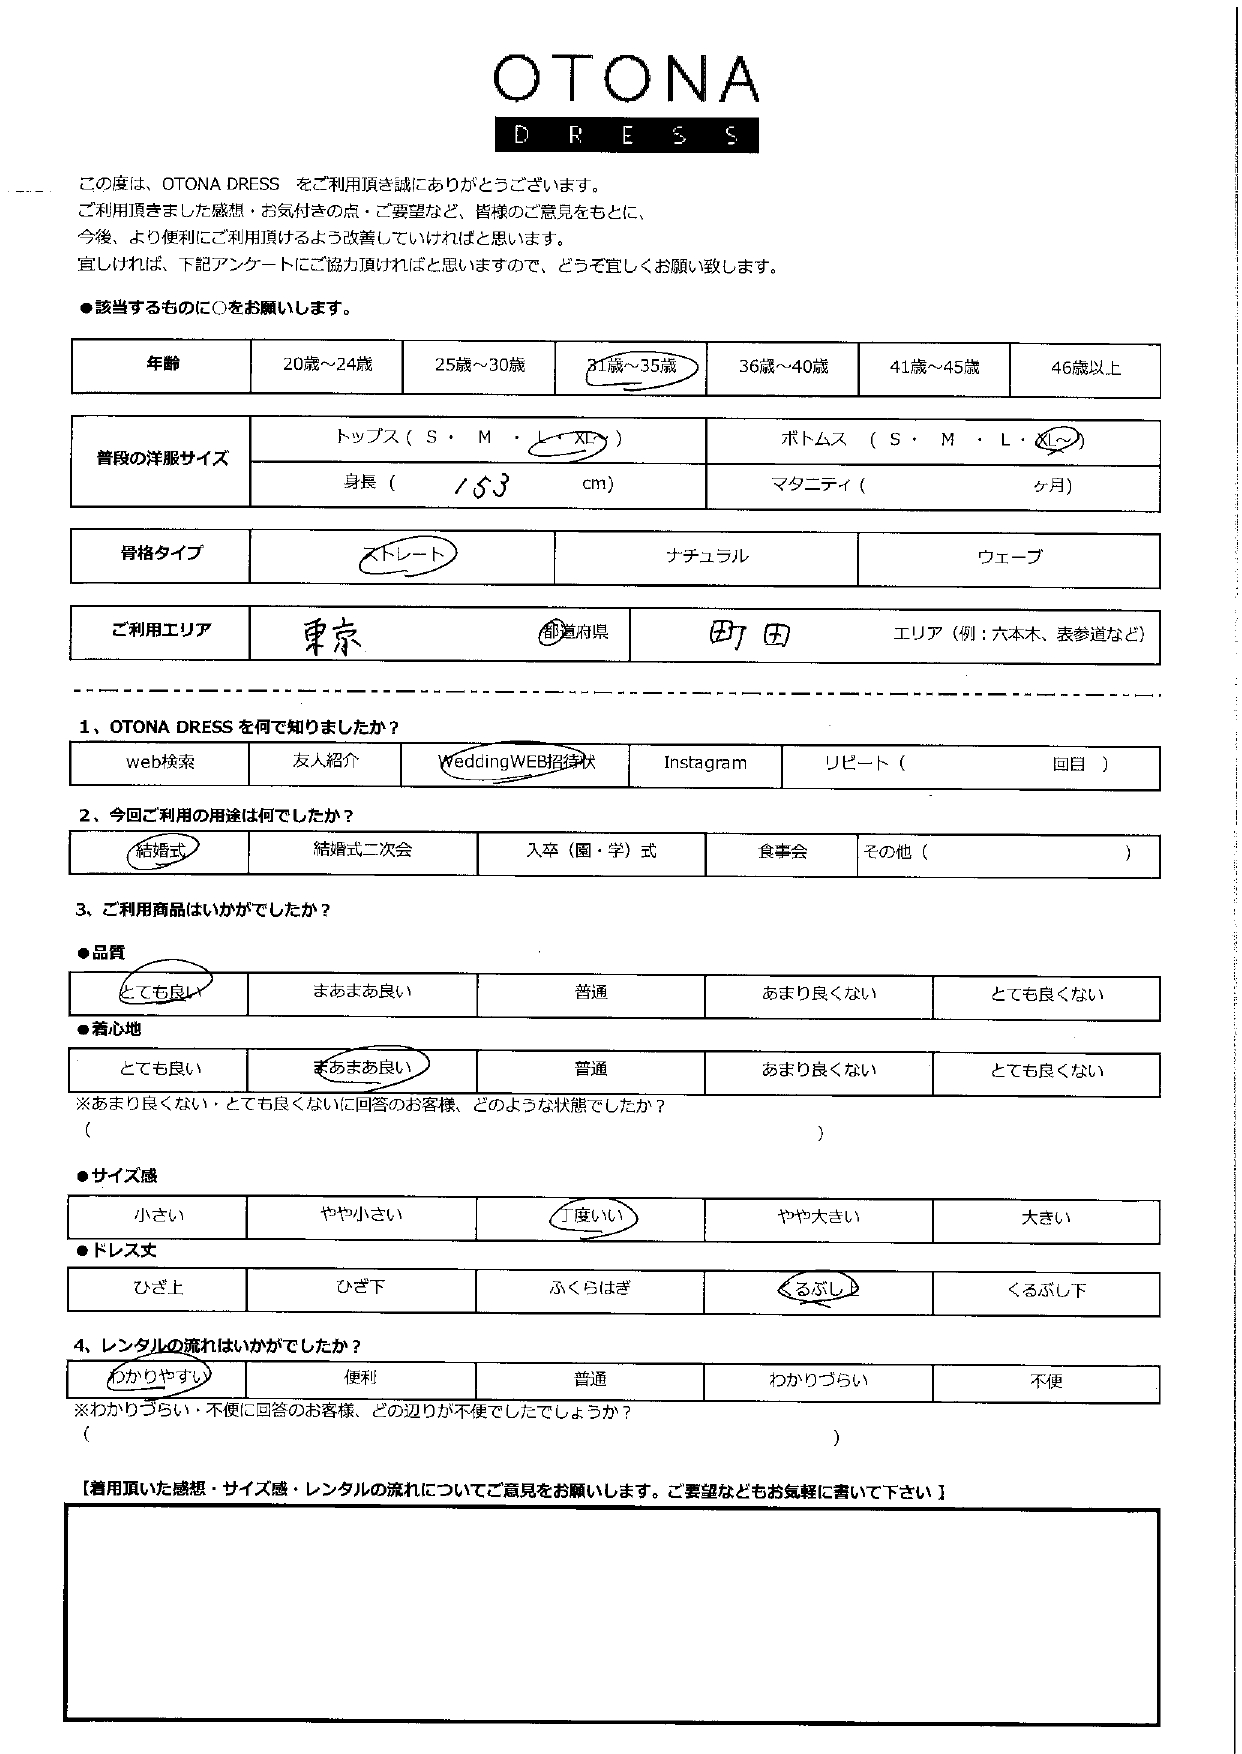 OTONA
DRESS
この度は、OTONA DRESS　をご利用頂き誠にありがとうございます。
ご利用頂きました感想・お気付きの点・ご要望など、皆様のご意見をもとに、
今後、より便利にご利用頂けるよう改善していければと思います。
宜しければ、下記アンケートにご協力頂ければと思いますので、どうぞ宜しくお願い致します。
●該当するものに○をお願いします。
年齢 20歳～24歳 25歳～30歳 31歳～35歳 36歳～40歳 41歳～45歳 46歳以上
普段の洋服サイズ トップス ( S ・ M ・ L ・ XL～ ) ボトムス ( S ・ M ・ L ・ XL～ )
身長 ( 153 cm) マタニティ ( ヶ月)
骨格タイプ ストレート ナチュラル ウェーブ
ご利用エリア 東京 都道府県 町田 エリア（例：六本木、表参道など）
1、OTONA DRESS を何で知りましたか？
web検索 友人紹介 WeddingWEB招待状 Instagram リピート（ 回目 ）
2、今回ご利用の用途は何でしたか？
結婚式 結婚式二次会 入卒（園・学）式 食事会 その他（ ）
3、ご利用商品はいかがでしたか？
●品質
とても良い まあまあ良い 普通 あまり良くない とても良くない
●着心地
とても良い まあまあ良い 普通 あまり良くない とても良くない
※あまり良くない・とても良くないに回答のお客様、どのような状態でしたか？
（ ）
●サイズ感
小さい やや小さい 丁度いい やや大きい 大きい
●ドレス丈
ひざ上 ひざ下 ふくらはぎ くるぶし上 くるぶし下
4、レンタルの流れはいかがでしたか？
わかりやすい 便利 普通 わかりづらい 不便
※わかりづらい・不便に回答のお客様、どの辺りが不便でしたでしょうか？
（ ）
【着用頂いた感想・サイズ感・レンタルの流れについてご意見をお願いします。ご要望などもお気軽に書いて下さい 】